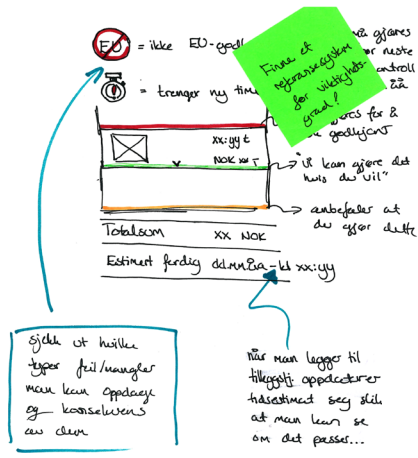 EU = ikke EU-godk
må gjøres
før neste
kontroll
= trenger ny time
Finne et
referansesystem
for viktighets-
grad?
for å
godkjent
xx:yy t
NOK xx T
"Vi kan gjøre det
hvis du vil"
anbefaler at
du gjør dette
Totalsum xx NOK
Estimert ferdig dd.mm.åå - kl xx:yy
sjekk ut hvilke
typer feil/mangler
man kan oppdage
og konsekvens
av dem
når man legger til
tilleggstj. oppdaterer
tidsestimat seg slik
at man kan se
om det passer...